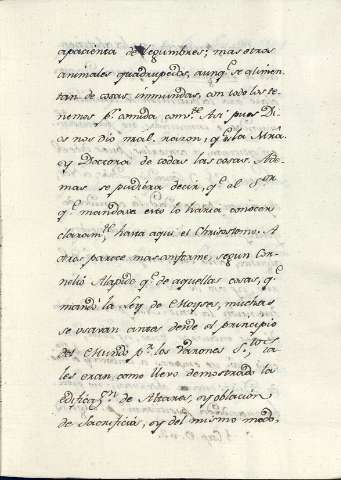 apacienta de Legumbres; mas otros
animales quadrupedos, aunq.e se alimen-
tan de cosas immundas, con todo los te-
nemos p.r comida com.te Asi pues Di-
os nos dio nral. razon, q.e es la Mra.
y Doctora de todas las cosas. Ade-
mas se pudiera decir, q.e el S.or
q.e mandava esto lo haria conocer
claram.te, hasta aqui el Chrisostomo. A
otros parece mas conforme, segun Cor-
nelio Alapide q.e de aquellas cosas, q.e
mandó la Ley de Moyses, muchas
se usavan antes desde el principio
del Mundo p.r los Varones S.tos, ta
les eran como llevo demostrado la
edificaz.n de Altares, oy oblacion
de Sacrificio, oy del mismo modo,